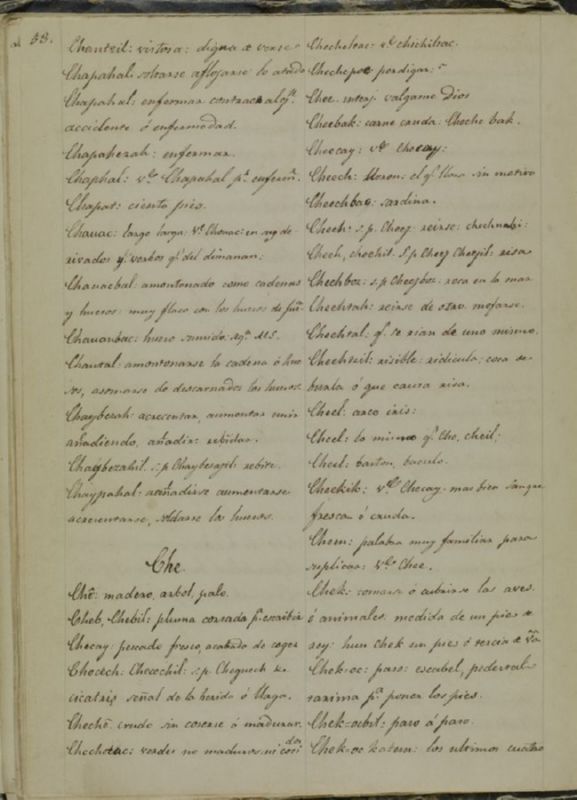 53.
Chanteil: vistosa: digna de verse
Chapahal: soltarse aflojarse lo atado
Chapahal: enfermar contraer alg.ⁿ
accidente ó enfermedad.
Chapahezah: enfermar.
Chaphal: vᵈᵉ Chapahal pʳ enferm.
Chapat: ciento pies.
Chauac: largo larga: Vᵉ Chouac: en
rivados y verbos qᵉ del dimanan:
Chauacbal: amontonado como cadenas
y huesos: muy flaco con los huesos de
hueso sumido: M.S.
Chautal: amontonarse la cadena ó hue
sos, asomarse de descarnados los huesos.
Chaybezah: acrecentar, aumentar unir
añadiendo, añadir:
Chaybezahil: s.p. Chaybesajil:
Chaypahal: añadirse aumentarse
acrecentarse, soldarse los huesos.
Che.
Chê: madero, arbol, palo.
Cheb, Chebil: pluma cortada pª escribir
Checay: pescado fresco, acabado de coger
Chocech: Checechil: s.p. Chequech &c.
cicatris señal de la herida ó llaga.
Chechê: crudo sin coserse ó madurar.
verdes no maduros, ni coci
dos
vᵈᵉ chichiltac.
perdigar:
Chee. interj. valgame Dios
Cheebak: carne cruda: Cheche bak.
Cheecay: vᵈᵉ Checay:
Cheech: lloron: el qᵉ llora sin motivo
Cheechbac: sardina.
Cheeh: s.p. Cheej: reirse:
Cheeh, cheehil. s.p. Cheej Cheejil: risa
Cheehboc: s.p. Cheejboc: roca en la mar
Cheehtah: reirse de otro. mofarse.
Cheehtal: qᵉ se rian de uno mismo.
Cheehteil: risible: ridicula: cosa de
burla ó que causa risa.
Cheel: arco iris:
Cheel: lo mismo qᵉ Che, cheil;
Cheel: baston, baculo.
Cheekik: vᵈᵉ Checay. mas bien Sangre
fresca ó cruda.
Chem: palabra muy familiar para
replicar: Vᵈᵉ Chee.
Chek: tomarse ó cubrirse las aves
ó animales. medida de un pies de
rey: hun chek un pies ó tercia de vᵃ
Chek-oc: paso: escabel, pedestal
tarima pª poner los pies.
Chek-ocbil: paso á paso.
Chek-oc katun: los ultimos cuatro